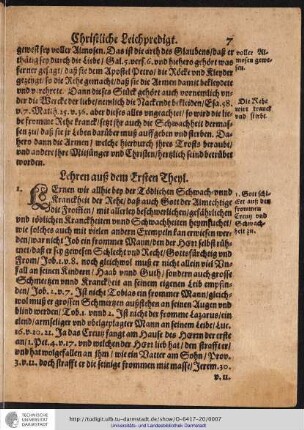 Christliche Leichpredigt. 7
gewest sey voller Almosen. Das ist die arth des Glaubens/ daß er
thätig sey durch die Liebe/ Gal. 5. vers. 6. vnd hieher gehört was
ferner gesagt/ daß sie dem Apostel Petro/ die Röcke vnd Kleyder
gezeigt/ so die Rehe gemacht/ daß sie die Armen damit bekleydet
Dann dieses Stück gehört auch vornemlich vn-
der die Werck der liebe/ nemlich die Nackende bekleiden/ Esa. 58.
v. 7. Matth. 25. v. 36. aber dieses alles vngeachtet/ so wird die lie-
be fromme Rehe kranck/ setzt ihr auch die Schwachheit dermas-
sen zu/ daß sie jr Leben darüber muß auffgeben vnd sterben. Da-
hero dann die Armen/ welche hierdurch ihres Trosts beraubt/
vnd andere ihre Mitjünger vnd Christen/ hertzlich seind betrübet
worden.
voller Al-
mosen gewe-
sen.
Die Rehe
wird kranck
vnd stirbt.
Lehren auß dem Ersten Theyl.
1. LErnen wir allhie bey der Tödlichen Schwach- vnnd
Kranckheit der Rehe/ daß auch Gott der Allmechtige
die Frommen/ mit allerley beschwerlichen/ gefährlichen
vnd tödtlichen Kranckheiten vnnd Schwachheiten heymsucht/
wie solches auch mit vielen andern Exempeln kan erwiesen wer-
den/ war nicht Job ein frommer Mann/ den der HErr selbst rüh-
met/ daß er sey gewesen Schlecht vnd Recht/ Gottsförchtig vnd
From/ Job. 1. v. 8. noch gleichwol muß er nicht allein viel Vn-
fall an seinen Kindern/ Haab vnnd Guth/ sondern auch grosse
Schmertzen vnnd Kranckheit an seinem eigenen Leib empfin-
den/ Job. 2. v. 7. Ist nicht Tobias ein frommer Mann/ gleich-
wol muß er grossen Schmertzen außstehen an seinen Augen vnd
blind werden/ Tob. 2. Ist nicht der fromme Lazarus/ ein
elend/ armseliger vnd vbelgeplagter Mann an seinem Leibe/ Luc.
16. v. 20. 21. Ja das Creutz fangt am Hause des HErrn der erste
an/ 1. Pet. 4. v. 17. vnd welchen der HErr lieb hat/ den stroffet er/
vnd hat wolgefallen an jhm/ wie ein Vatter am Sohn/ Prov.
3. v. 12. doch strafft er die seinige frommen mit masse/ Jerem. 30.
v. 11.
1. Gott schi-
cket auch den
frommen
Creutz vnd
Schwach-
heit zu.
http://tudigit.ulb.tu-darmstadt.de/show/O-6417-20/0007
Universitäts- und Landesbibliothek Darmstadt